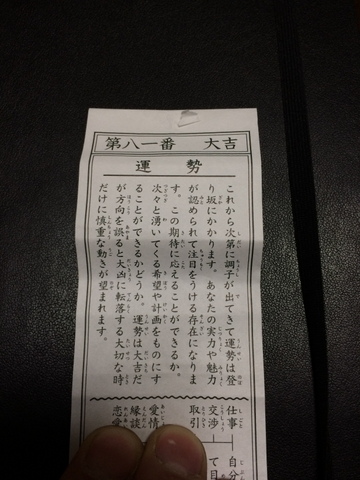 第八一番　大吉
運　勢
これから次第に調子が出てきて運勢は登
り坂にかかります。あなたの実力や魅力
が認められて注目をうける存在になりま
す。この期待に応えることができるか。
次々と湧いてくる希望や計画をものにす
ることができるかどうか。運勢は大吉だ
が方向を誤ると大凶に転落する大切な時
だけに慎重な動きが望まれます。
仕事
交渉
取引
愛情
縁談
恋愛
自分
て目